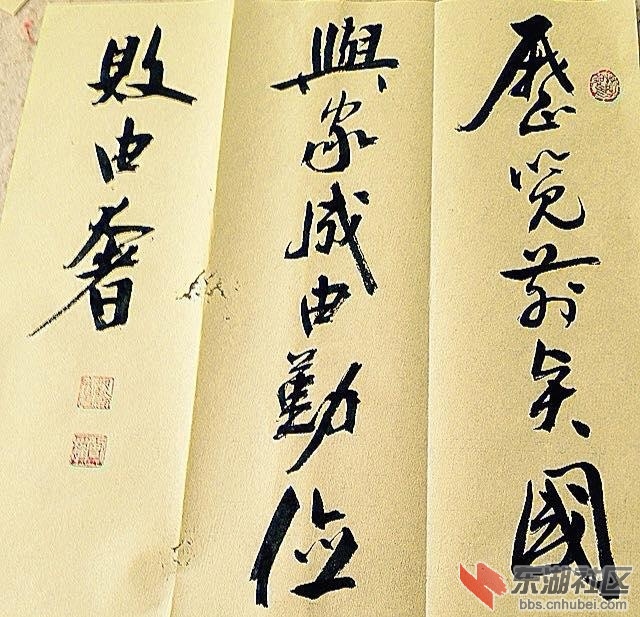 歷览前贤國
與家成由勤俭
敗由奢
东湖社区
bbs.cnhubei.com